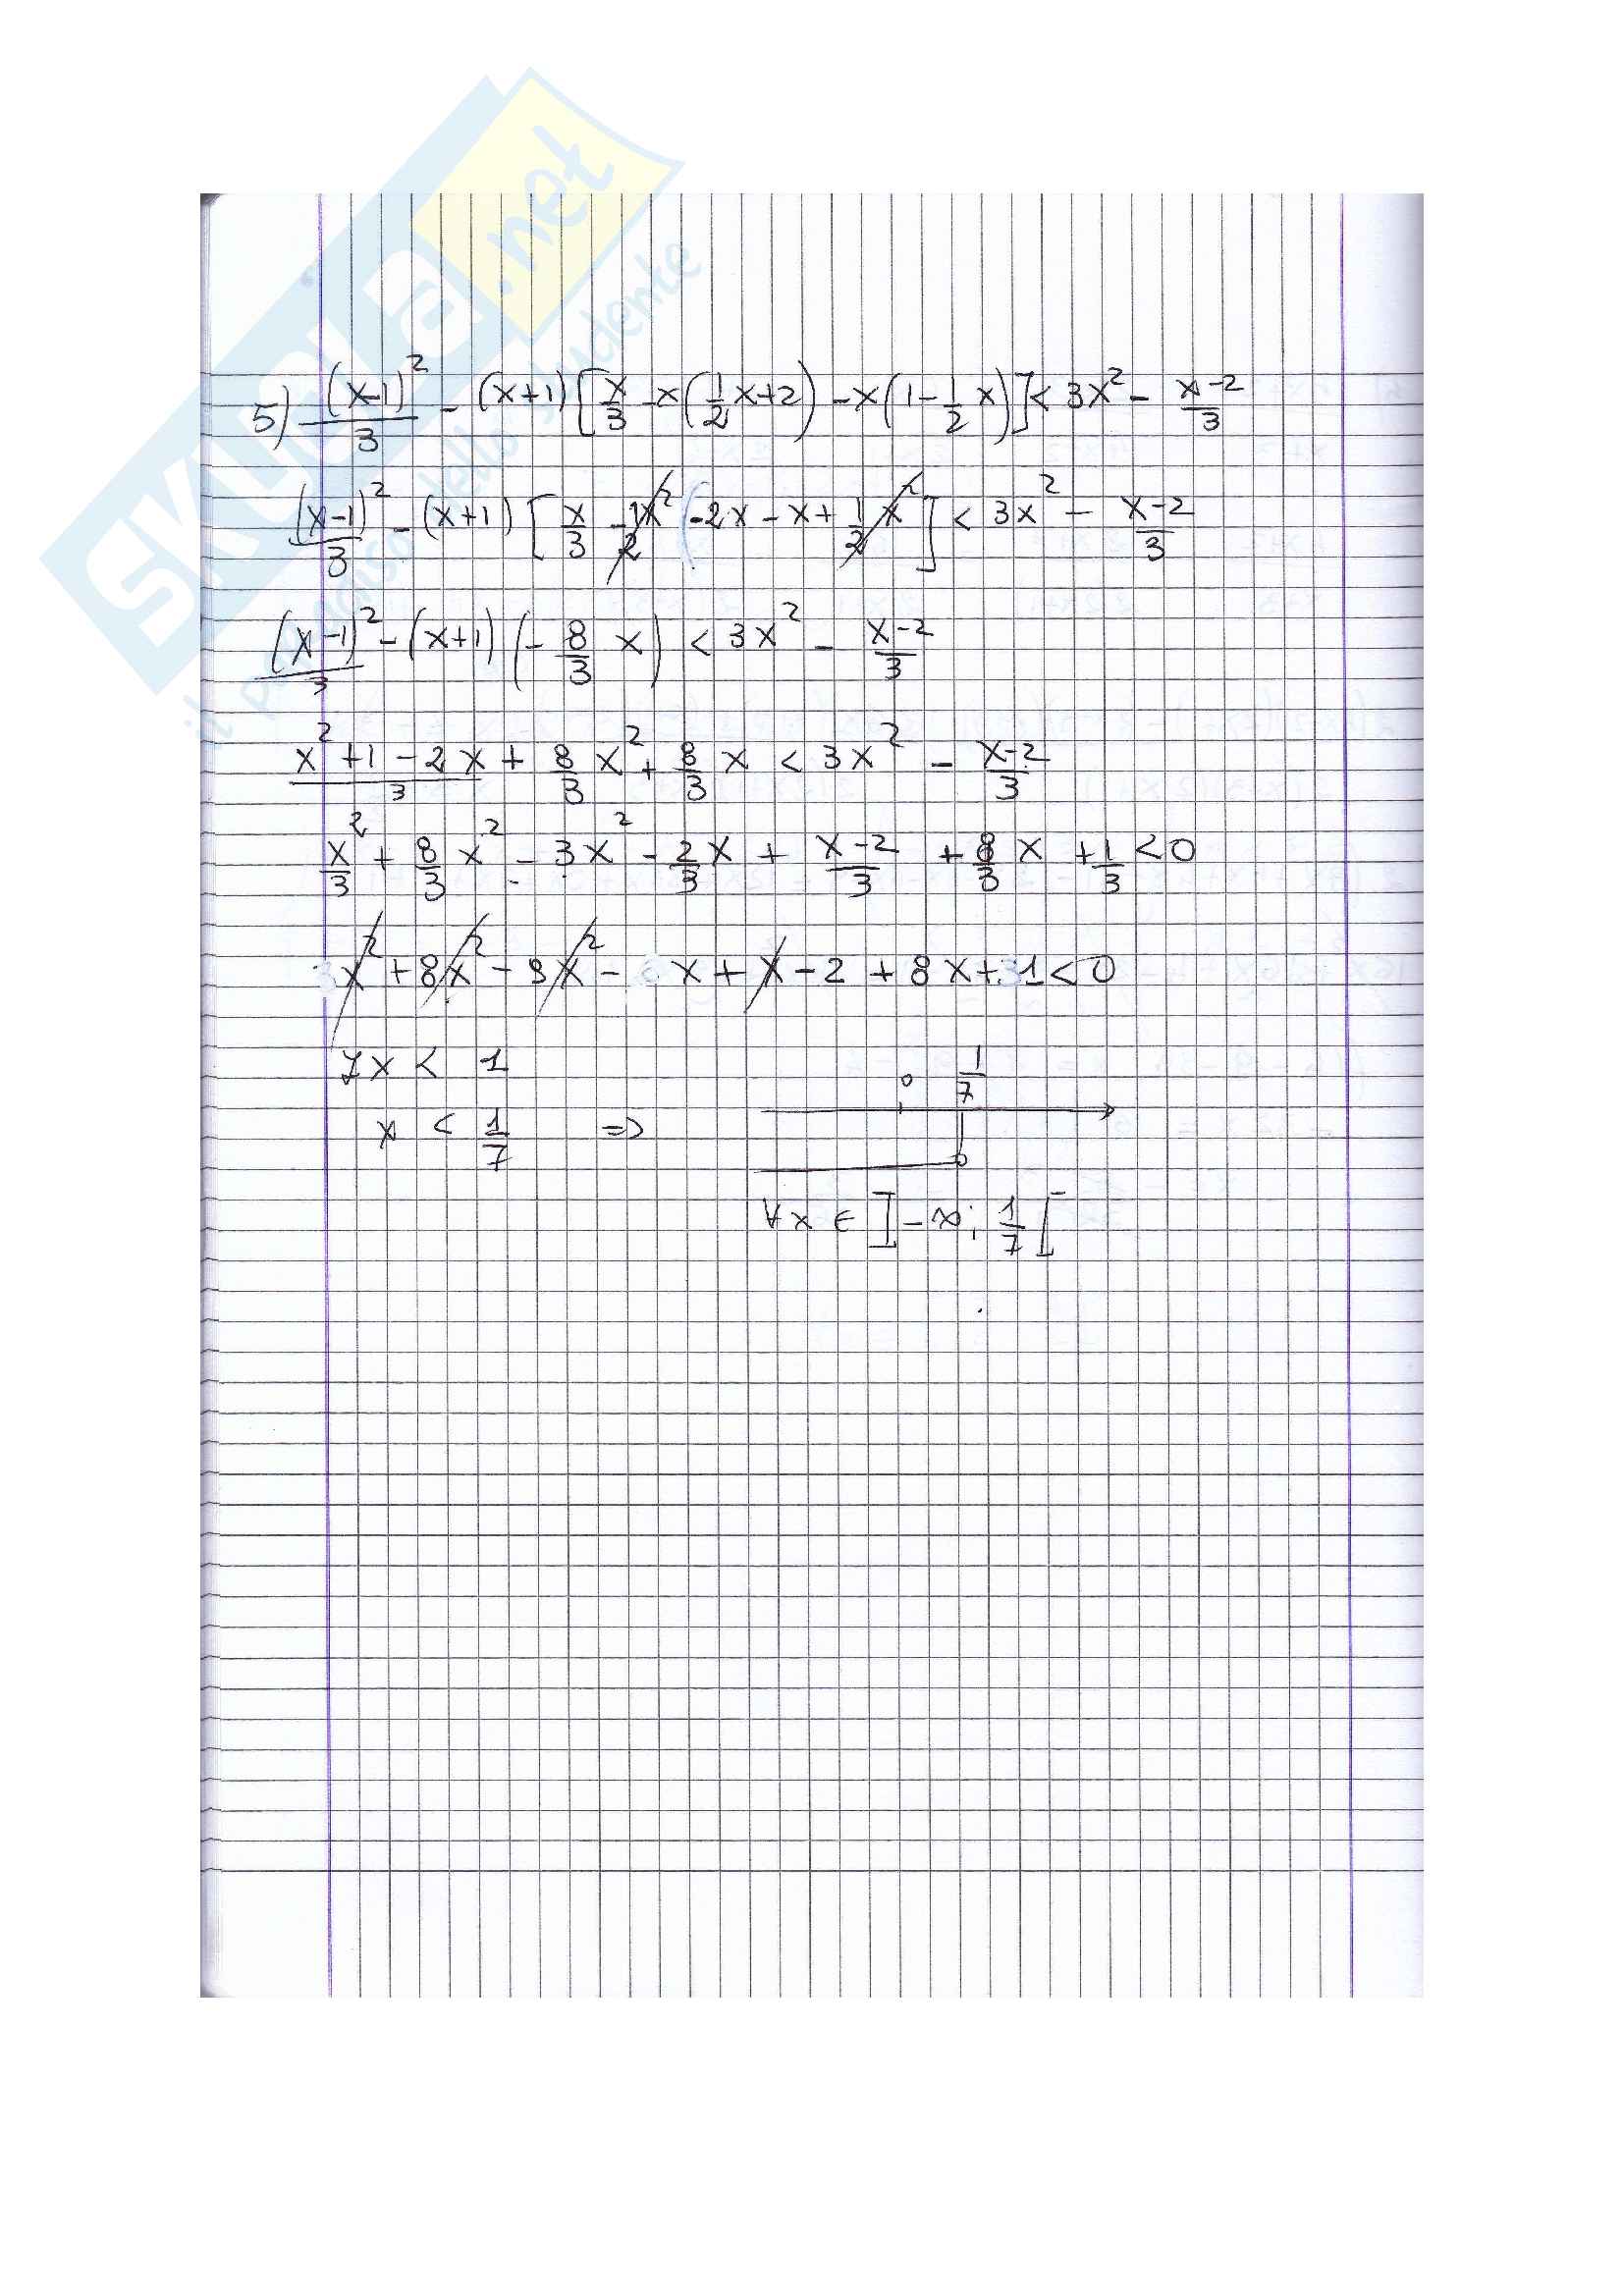 SKUOLA.net
il paradiso dello studente
5) (x-1)²/3 - (x+1)[x/3 - x(1/2 x+2) - x(1 - 1/2 x)] < 3x² - x-2/3
(x-1)²/3 - (x+1) [x/3 - 1x²/2 - 2x - x + 1/2 x²] < 3x² - x-2/3
(x-1)²/3 - (x+1) (- 8/3 x) < 3x² - x-2/3
x²+1-2x/3 + 8/3 x² + 8/3 x < 3x² - x-2/3
x²/3 + 8/3 x² - 3x² - 2/3 x + x-2/3 + 8/3 x + 1/3 < 0
x² + 8x² - 9x² - x + x - 2 + 8x + 1 < 0
7x < 1
0 1/7
x < 1/7 ⇒
∀x ∈ ]-∞; 1/7[